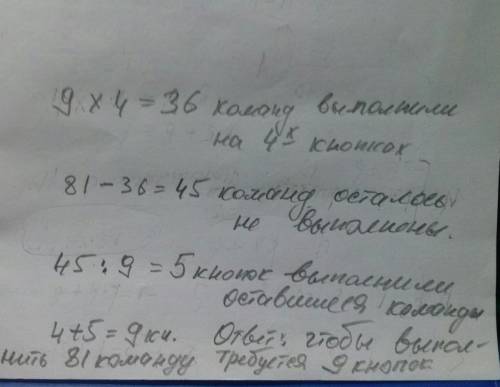 9 х 4 = 36 команд выполнили
на 4х кнопках
81 - 36 = 45 команд осталось
не выполнены.
45 : 9 = 5 кнопок выполнили
оставшиеся команды
4+5 = 9 кн. Ответ: чтобы выпол-
нить 81 команду требуется 9 кнопок